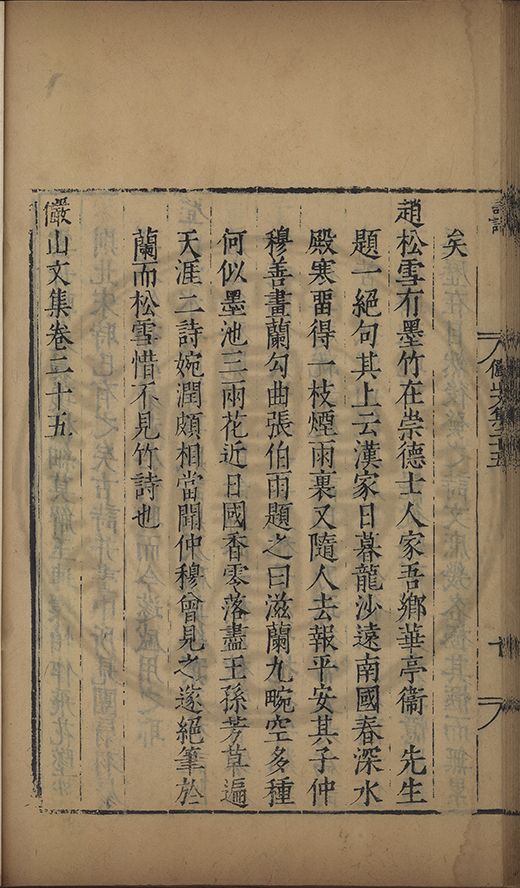 矣
趙松雪有墨竹在崇德士人家吾鄉華亭衞　先生
題一絕句其上云漢家日暮龍沙遠南國春深水
殿寒畱得一枝煙雨裏又隨人去報平安其子仲
穆善畫蘭勾曲張伯雨題之曰滋蘭九畹空多種
何似墨池三兩花近日國香零落盡王孫芳草遍
天涯二詩婉潤頗相當聞仲穆曾見之遂絕筆於
蘭而松雪惜不見竹詩也
儼山文集卷二十五